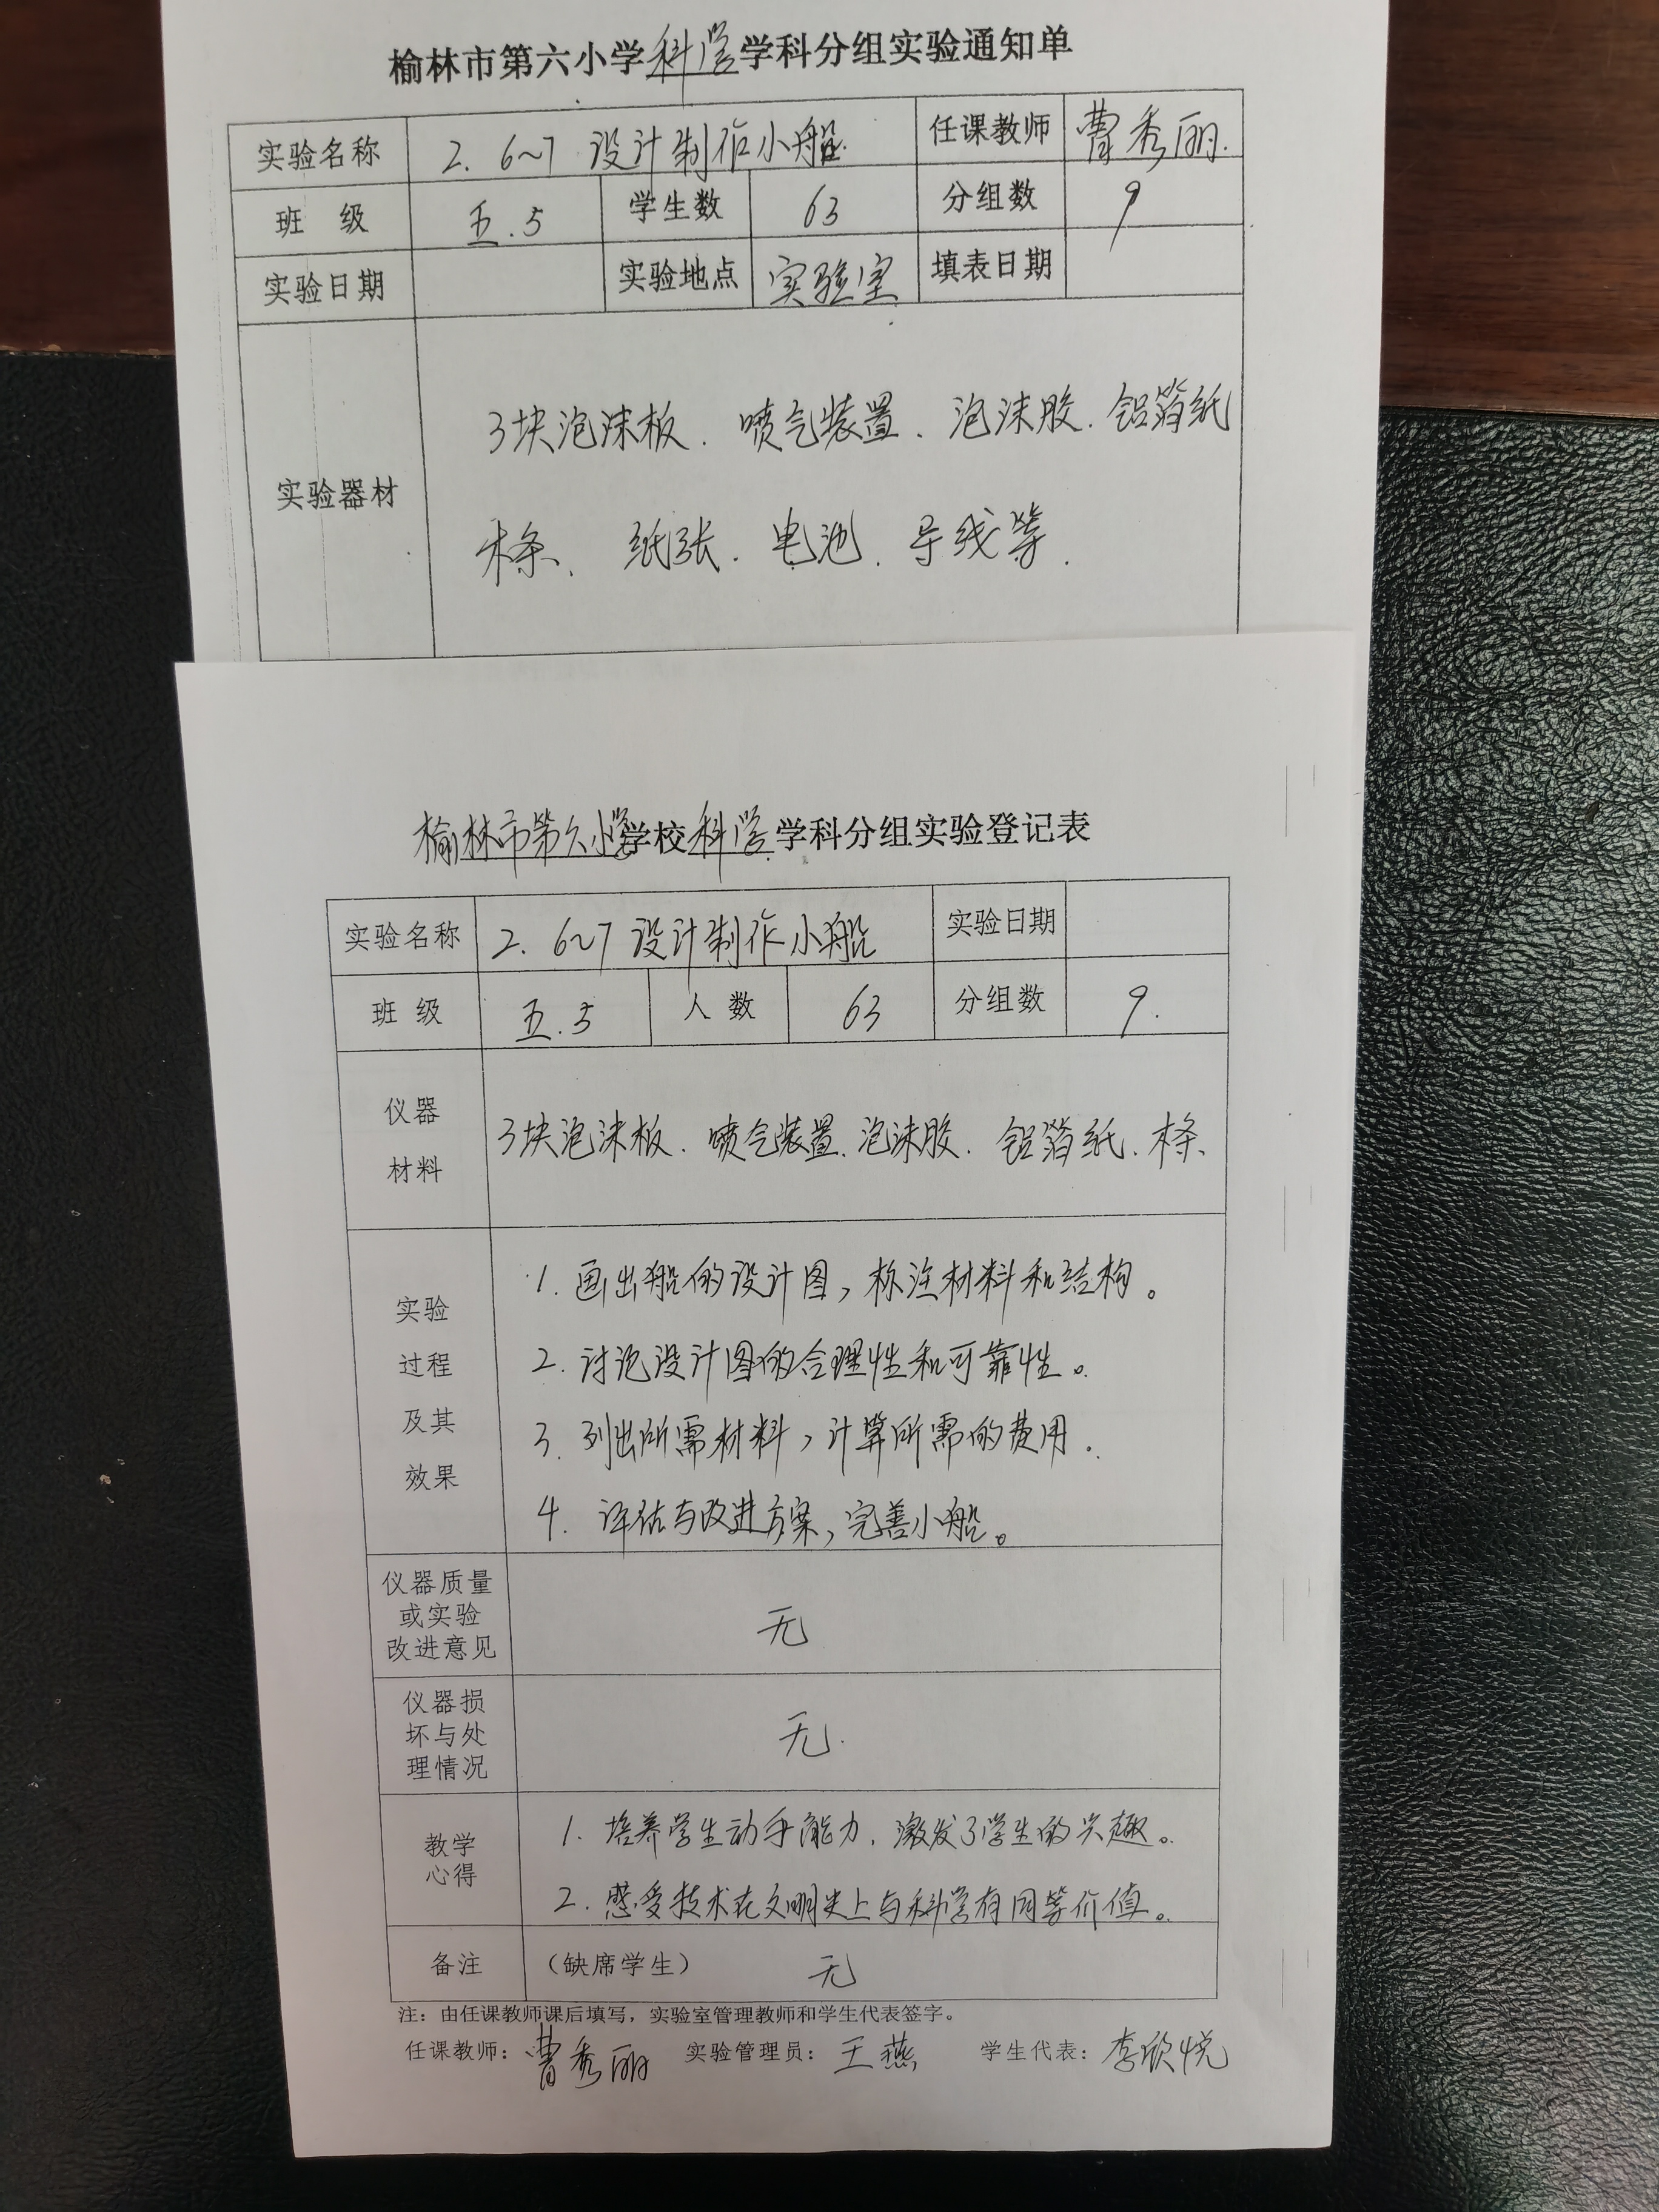 榆林市第六小学科学学科分组实验通知单
实验名称 2.6~7 设计制作小船 任课教师 曹秀丽
班 级 五.5 学生数 63 分组数 9
实验日期 实验地点 实验室 填表日期
实验器材 3块泡沫板、喷气装置、泡沫胶、铝箔纸
木条、纸张、电池、导线等.
榆林市第六小学学校科学学科分组实验登记表
实验名称 2.6~7 设计制作小船 实验日期
班 级 五.5 人 数 63 分组数 9.
仪器
材料
3块泡沫板、喷气装置、泡沫胶、铝箔纸、木条、
实验
过程
及其
效果
1. 画出船的设计图,标注材料和结构。
2. 讨论设计图的合理性和可靠性。
3. 列出所需材料,计算所需的费用.
4. 评估与改进方案,完善小船。
仪器质量
或实验
改进意见
无
仪器损
坏与处
理情况
无.
教学
心得
1. 培养学生动手能力,激发了学生的兴趣。
2. 感受技术在文明史上与科学有同等价值。
备注 (缺席学生) 无
注:由任课教师课后填写,实验室管理教师和学生代表签字。
任课教师:曹秀丽 实验管理员:王燕 学生代表:李欣悦